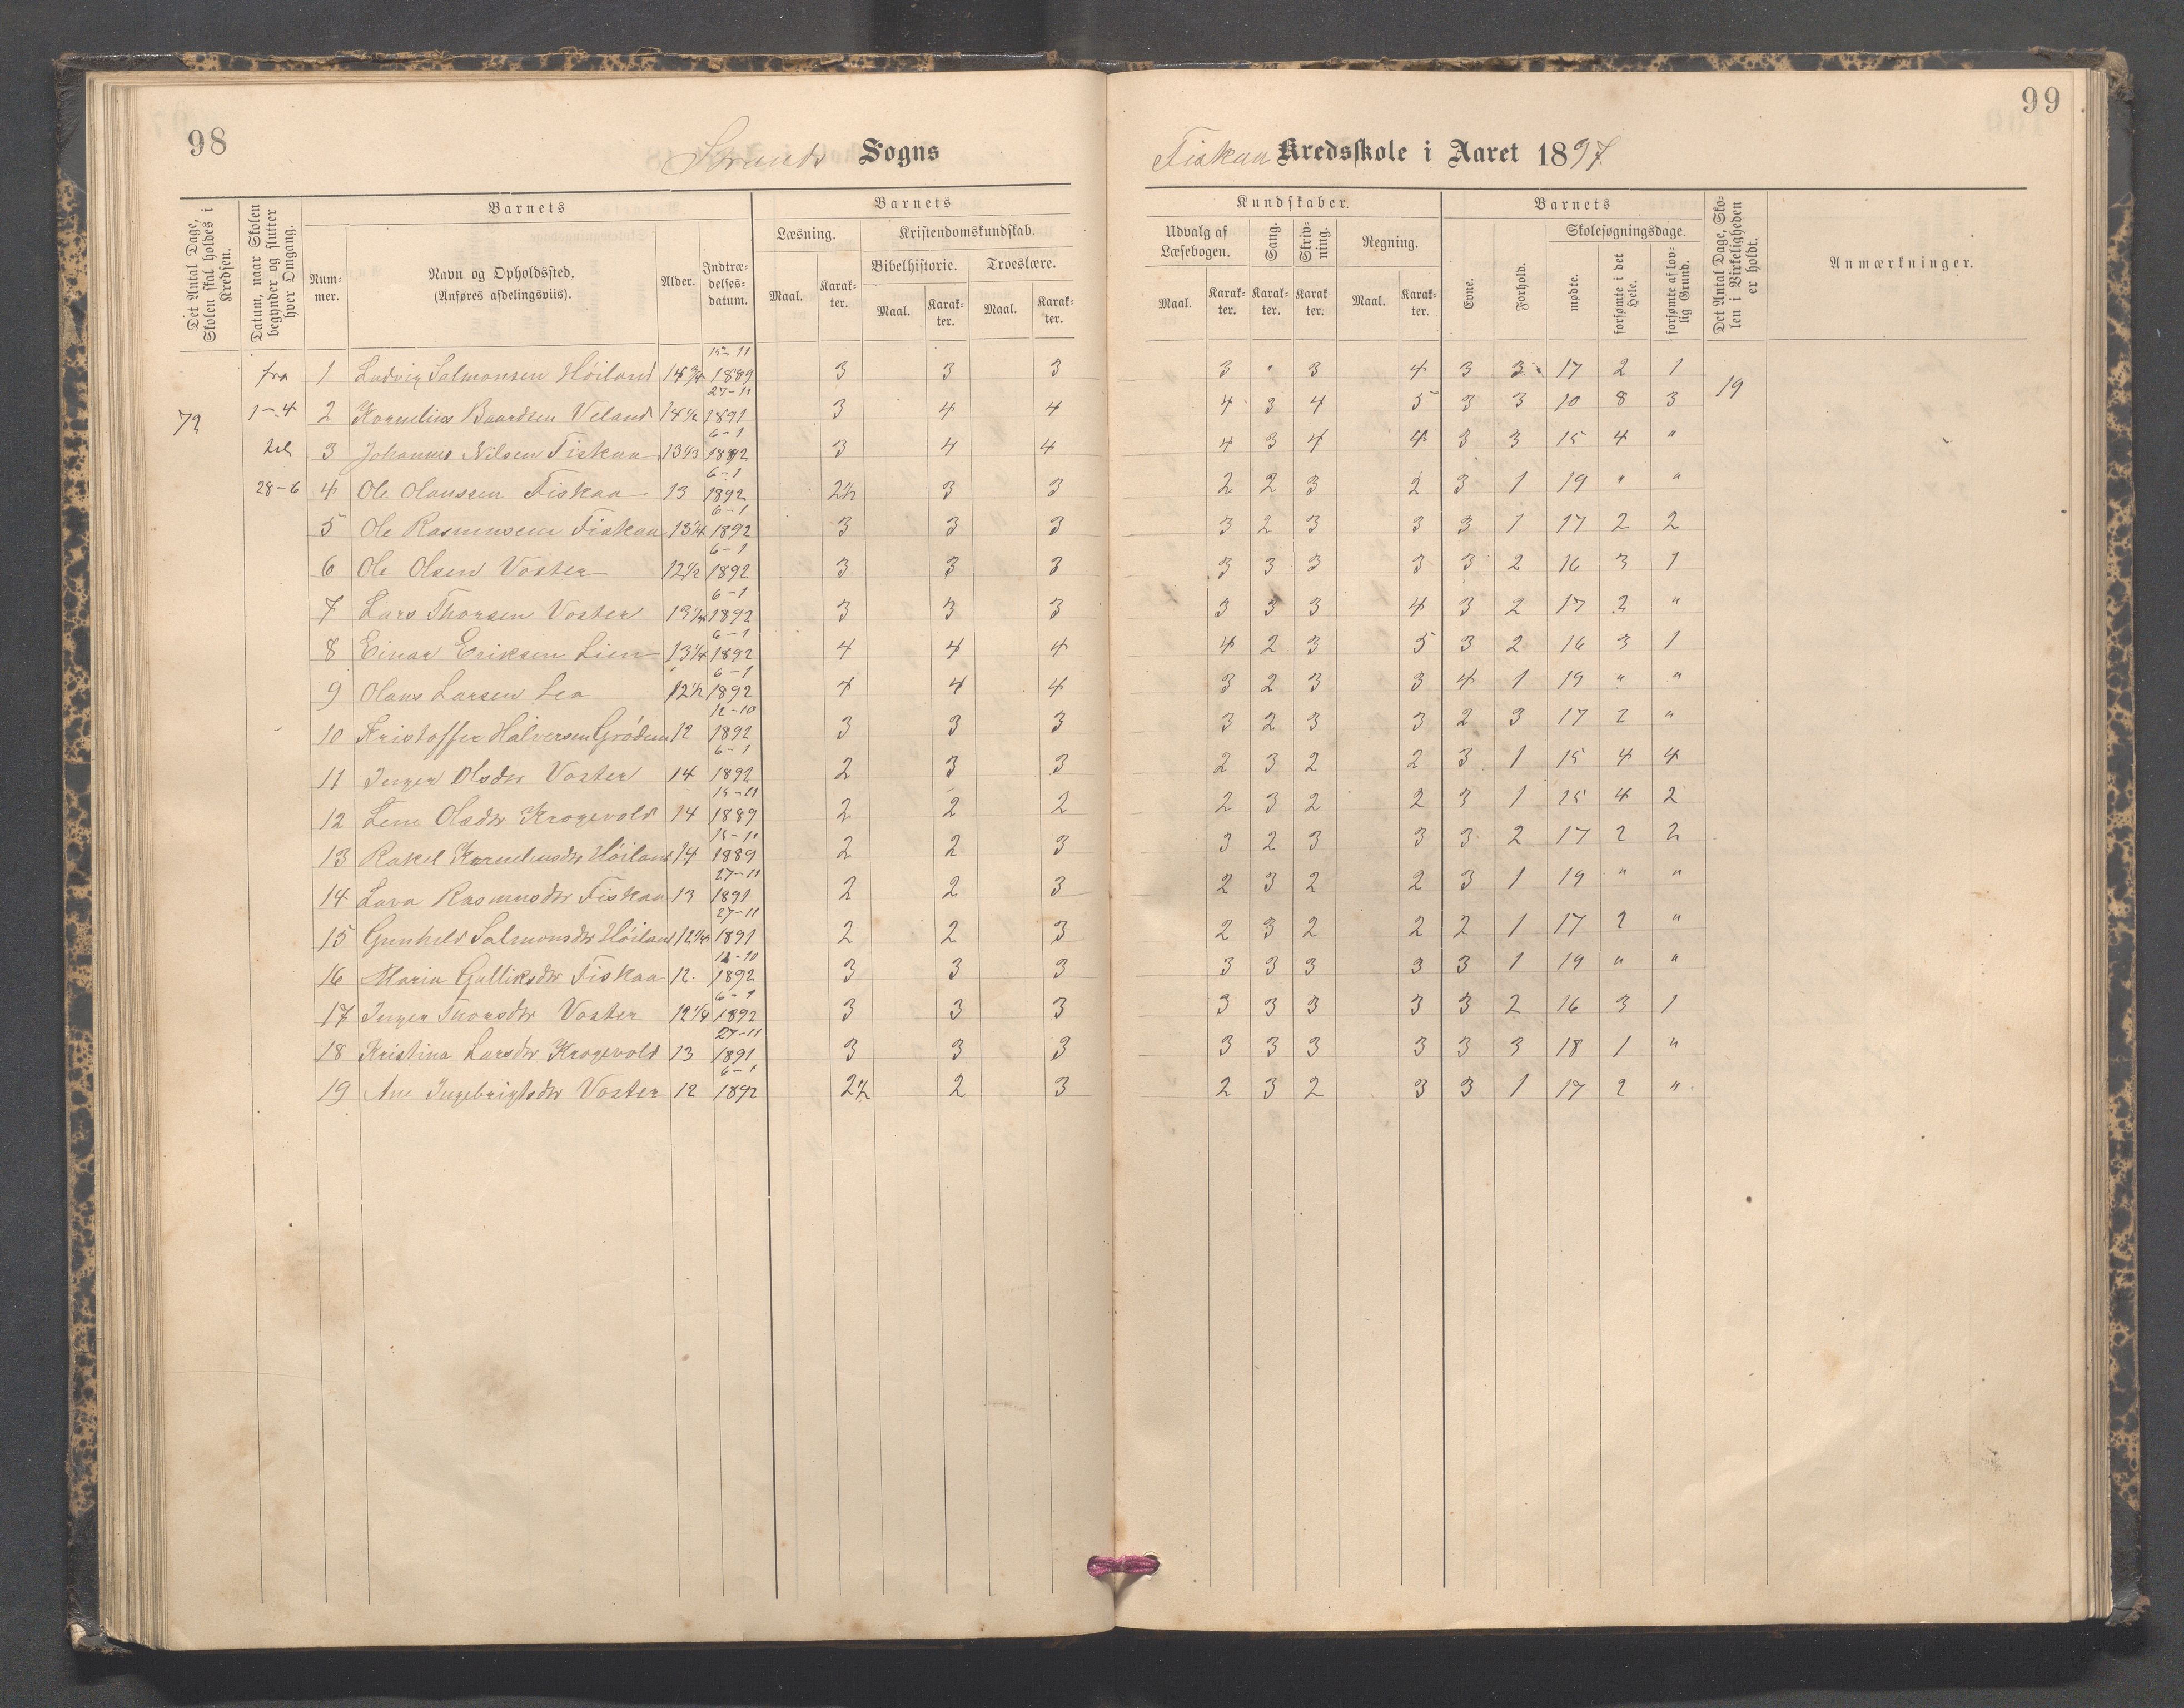 98
Strands Sogns
Det Antal Dage, Skolen skal holdes i Kredsen.
Datum, naar Skolen begynder og slutter hver Omgang.
Barnets
Nummer.
Navn og Opholdssted.
(Anføres afdelingsviis).
Alder.
Indtrædelses-datum.
Barnets
Læsning.
Kristendomskundskab.
Bibelhistorie.
Troeslære.
Maal.
Karakter.
Maal.
Karakter.
Maal.
Karakter.
72
fra
1-4
til
28-6
1 Ludvig Salmonsen Höiland 14 3/4 15-11 1889 3 3 3
2 Kornelius Baardsen Veland 14 1/2 27-11 1891 3 4 4
3 Johannes Nilsen Fiskaa 13 1/3 6-1 1892 3 4 4
4 Ole Olaussen Fiskaa 13 6-1 1892 2 1/2 3 3
5 Ole Rasmussen Fiskaa 13 1/4 6-1 1892 3 3 3
6 Ole Olsen Voster 12 1/2 6-1 1892 3 3 3
7 Lars Thorsen Voster 13 1/4 6-1 1892 3 3 3
8 Einar Eriksen Lien 13 1/4 6-1 1892 4 4 4
9 Olaus Larsen Lea 12 1/2 6-1 1892 4 4 4
10 Kristoffer Halversen Gröden 12 12-10 1892 3 3 3
11 Inger Olsdtr Voster 14 6-1 1892 2 3 3
12 Lene Olsdtr Krogevold 14 15-11 1889 2 2 2
13 Rakel Korneliusdtr Höiland 14 15-11 1889 2 2 3
14 Lava Rasmusdtr Fiskaa 13 27-11 1891 2 2 3
15 Gunhild Salmonsdtr Höiland 12 1/4 27-11 1891 2 2 3
16 Maria Gulliksdtr Fiskaa 12 12-10 1892 3 3 3
17 Inger Thorsdtr Voster 12 1/4 6-1 1892 3 3 3
18 Kristina Larsdtr Krogevold 13 27-11 1891 3 3 3
19 Ane Ingebrigtsdtr Voster 12 6-1 1892 2 1/2 2 3
99
Fiskaa Kredsskole i Aaret 1897
Kundskaber.
Udvalg af Læsebogen.
Sang.
Skrivning.
Regning.
Maal.
Karakter.
Karakter.
Karakter.
Maal.
Karakter.
Barnets
Evne.
Forhold.
Skolesøgningsdage.
mødte.
forsømte i det Hele.
forsømte af lovlig Grund.
Det Antal Dage, Skolen i Virkeligheden er holdt.
Anmærkninger.
3 · 3 4 3 3 17 2 1 19
4 3 4 5 3 3 10 8 3
4 3 4 4 3 3 15 4 "
2 2 3 2 3 1 19 " "
3 2 3 3 3 1 17 2 2
3 3 3 3 3 2 16 3 1
3 3 3 4 3 2 17 2 "
4 2 3 5 3 2 16 3 1
3 2 3 3 4 1 19 " "
3 2 3 3 2 3 17 2 "
2 3 2 2 3 1 15 4 4
2 3 2 2 3 1 15 4 2
3 2 3 3 3 2 17 2 2
2 3 2 2 3 1 19 " "
2 3 2 2 2 1 17 2 "
3 3 3 3 3 1 19 " "
3 3 3 3 3 2 16 3 1
3 3 3 3 3 3 18 1 "
2 3 2 3 3 1 17 2 "